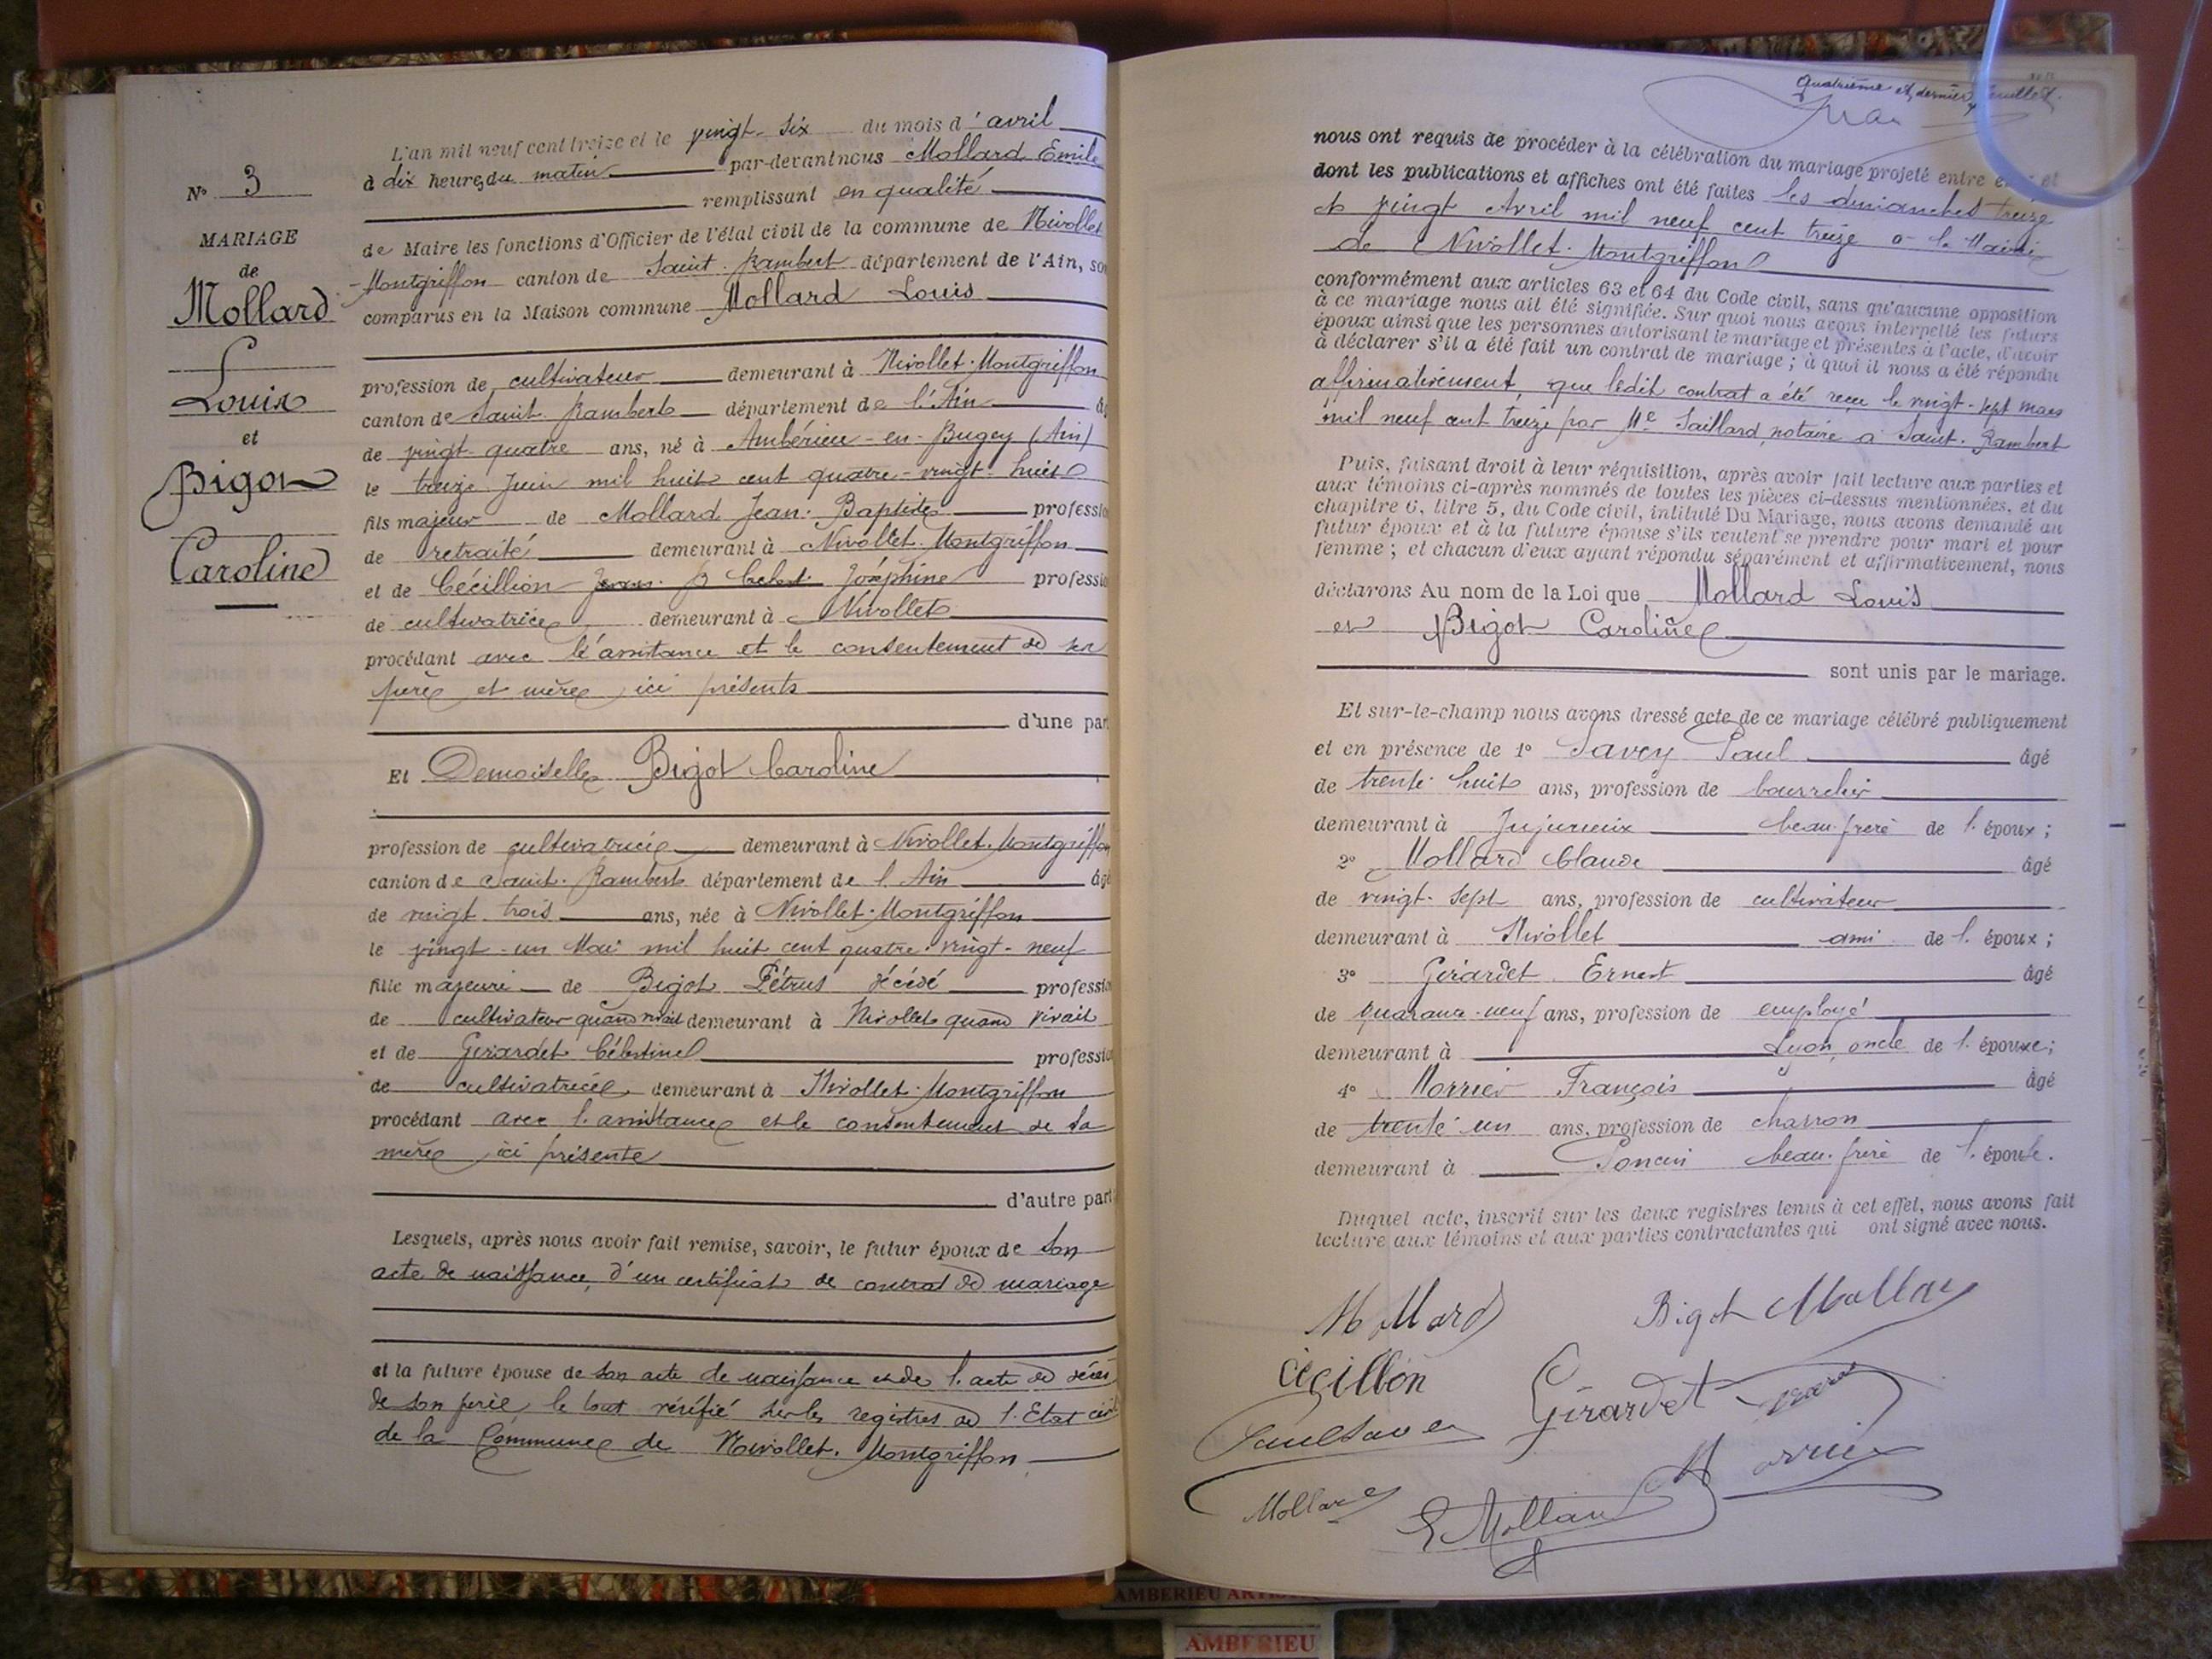 N° 3
MARIAGE
de
Mollard
Louis
et
Bigot
Caroline
L'an mil neuf cent treize et le vingt-six du mois d'avril
à dix heures du matin par-devant nous Mollard Emile
remplissant en qualité
de Maire les fonctions d'Officier de l'état civil de la commune de Nivollet
-Montgriffon canton de Saint-Rambert département de l'Ain, so
comparus en la Maison commune Mollard Louis
profession de cultivateur demeurant à Nivollet-Montgriffon
canton de Saint-Rambert département de l'Ain âg
de vingt-quatre ans, né à Ambérieu-en-Bugey (Ain)
le treize Juin mil huit cent quatre-vingt-huit
fils majeur de Mollard Jean-Baptiste professio
de retraité demeurant à Nivollet-Montgriffon
et de Cécillion Joséphine professio
de cultivatrice demeurant à Nivollet
procédant avec l'assistance et le consentement de ses
père et mère ici présents
d'une part
Et Demoiselle Bigot Caroline
profession de cultivatrice demeurant à Nivollet-Montgriffon
canton de Saint-Rambert département de l'Ain âgé
de vingt trois ans, née à Nivollet-Montgriffon
le vingt-un Mai mil huit cent quatre-vingt-neuf
fille majeure de Bigot Pétrus décédé professio
de cultivateur quand vivait demeurant à Nivollet quand vivait
et de Girardet Célestine professio
de cultivatrice demeurant à Nivollet-Montgriffon
procédant avec l'assistance et le consentement de sa
mère ici présente
d'autre part
Lesquels, après nous avoir fait remise, savoir, le futur époux de son
acte de naissance, d'un certificat de contrat de mariage
et la future épouse de son acte de naissance et de l'acte de décès
de son père, le tout vérifié sur les registres de l'Etat civil
de la Commune de Nivollet-Montgriffon
Quatrième et dernier feuillet.
nous ont requis de procéder à la célébration du mariage projeté entre eux et
dont les publications et affiches ont été faites les dimanches treize
et vingt Avril mil neuf cent treize à la Mairie
de Nivollet-Montgriffon
conformément aux articles 63 et 64 du Code civil, sans qu'aucune opposition
à ce mariage nous ait été signifiée. Sur quoi nous avons interpellé les futurs
époux ainsi que les personnes autorisant le mariage et présentes à l'acte, d'avoir
à déclarer s'il a été fait un contrat de mariage ; à quoi il nous a été répondu
affirmativement, que ledit contrat a été reçu le vingt-sept mars
mil neuf cent treize par Me Saillard, notaire à Saint-Rambert
Puis, faisant droit à leur réquisition, après avoir fait lecture aux parties et
aux témoins ci-après nommés de toutes les pièces ci-dessus mentionnées, et du
chapitre 6, titre 5, du Code civil, intitulé Du Mariage, nous avons demandé au
futur époux et à la future épouse s'ils veulent se prendre pour mari et pour
femme ; et chacun d'eux ayant répondu séparément et affirmativement, nous
déclarons Au nom de la Loi que Mollard Louis
et Bigot Caroline
sont unis par le mariage.
Et sur-le-champ nous avons dressé acte de ce mariage célébré publiquement
et en présence de 1° Savey Paul âgé
de trente-huit ans, profession de bourrelier
demeurant à Jujurieux beau-frère de l'époux ;
2° Mollard Claude âgé
de vingt-sept ans, profession de cultivateur
demeurant à Nivollet ami de l'époux ;
3° Girardet Ernest âgé
de quarante-neuf ans, profession de employé
demeurant à Lyon, oncle de l'épouse ;
4° Morrier François âgé
de trente-un ans, profession de charron
demeurant à Poncin beau-frère de l'épouse.
Duquel acte, inscrit sur les deux registres tenus à cet effet, nous avons fait
lecture aux témoins et aux parties contractantes qui ont signé avec nous.
Mollard
Bigot Mollard
Cécillon
Girardet
Paul Savey
Morrier
Mollard
E Mollard
AMBERIEU
AMBERIEU